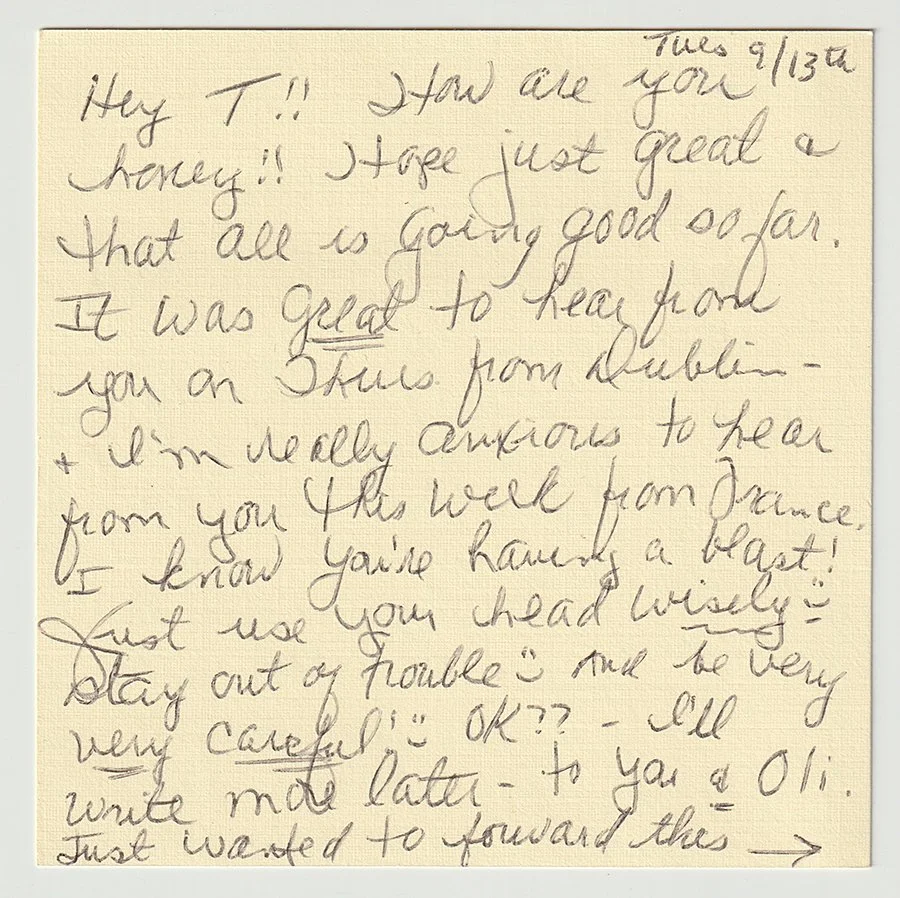 Tues 9/13th
Hey T!! How are you
honey!! Hope just great &
that all is going good so far.
It was great to hear from
you on Thurs. from Dublin -
+ I'm really anxious to hear
from you this week from France.
I know you're having a blast!
Just use your head wisely
stay out of trouble And be very
very careful! OK?? - I'll
write more later - to you & Oli.
Just wanted to forward this →